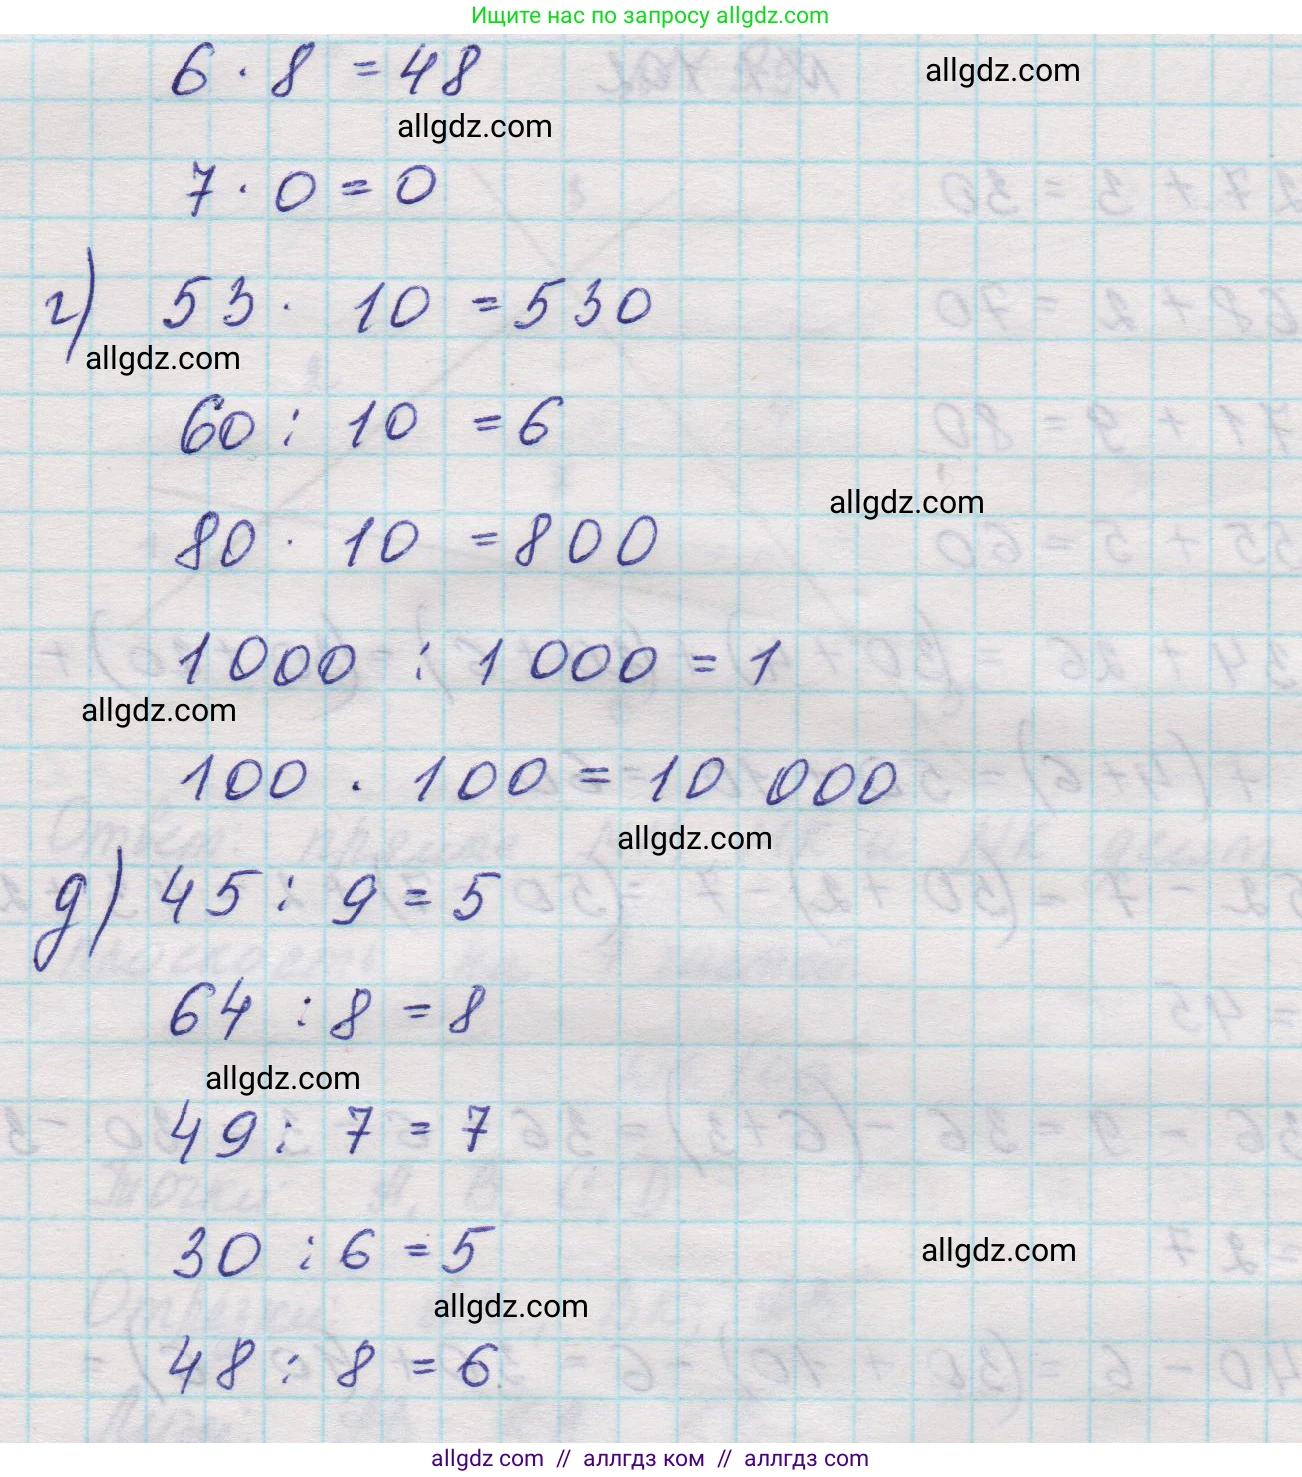 Ищите нас по запросу allgdz.com
6 · 8 = 48
allgdz.com
allgdz.com
7 · 0 = 0
г) 53 · 10 = 530
allgdz.com
60 : 10 = 6
allgdz.com
80 · 10 = 800
1000 : 1000 = 1
allgdz.com
100 · 100 = 10 000
allgdz.com
д) 45 : 9 = 5
64 : 8 = 8
allgdz.com
49 : 7 = 7
30 : 6 = 5
allgdz.com
allgdz.com
48 : 8 = 6
allgdz.com // аллгдз ком // allgdz.com